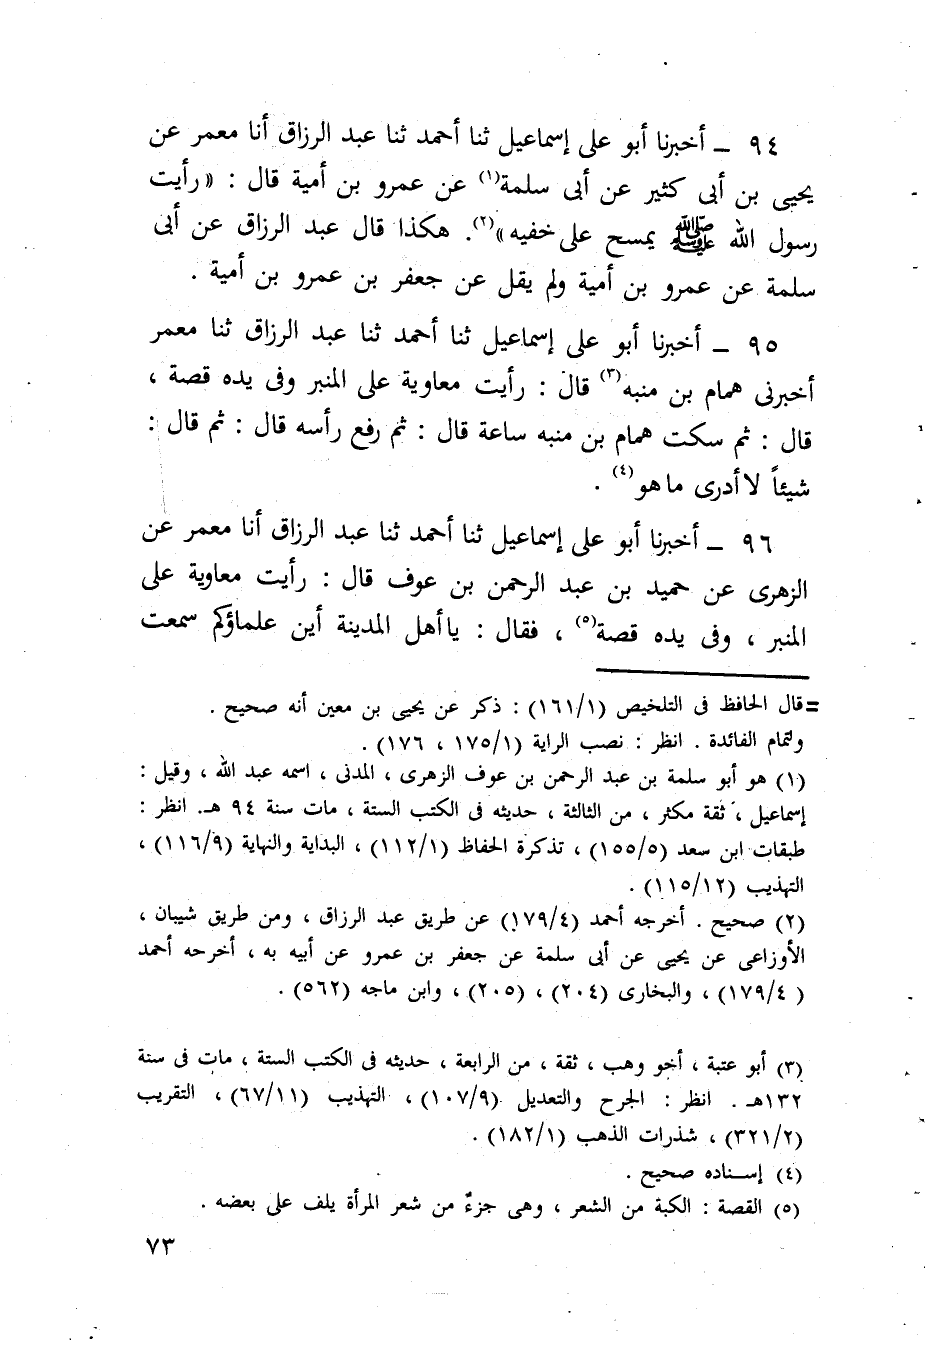 ٩٤ ــ أخبرنا أبو على إسماعيل ثنا أحمد ثنا عبد الرزاق أنا معمر عن
يحيى بن أبى كثير عن أبى سلمة(١) عن عمرو بن أمية قال : «رأيت
رسول الله ﷺ يمسح على خفيه»(٢). هكذا قال عبد الرزاق عن أبى
سلمة عن عمرو بن أمية ولم يقل عن جعفر بن عمرو بن أمية .
٩٥ ــ أخبرنا أبو على إسماعيل ثنا أحمد ثنا عبد الرزاق ثنا معمر
أخبرنى همام بن منبه(٣) قال : رأيت معاوية على المنبر وفى يده قصة ،
قال : ثم سكت همام بن منبه ساعة قال : ثم رفع رأسه قال : ثم قال :
شيئاً لا أدرى ما هو(٤) .
٩٦ ــ أخبرنا أبو على إسماعيل ثنا أحمد ثنا عبد الرزاق أنا معمر عن
الزهرى عن حميد بن عبد الرحمن بن عوف قال : رأيت معاوية على
المنبر ، وفى يده قصة(٥) ، فقال : يا أهل المدينة أين علماؤكم سمعت
= قال الحافظ فى التلخيص (١٦١/١) : ذكر عن يحيى بن معين أنه صحيح .
ولتمام الفائدة . انظر : نصب الراية (١٧٥/١ ، ١٧٦) .
(١) هو أبو سلمة بن عبد الرحمن بن عوف الزهرى ، المدنى ، اسمه عبد الله ، وقيل :
إسماعيل ، ثقة مكثر ، من الثالثة ، حديثه فى الكتب الستة ، مات سنة ٩٤ هـ. انظر :
طبقات ابن سعد (١٥٥/٥) ، تذكرة الحفاظ (١١٢/١) ، البداية والنهاية (١١٦/٩) ،
التهذيب (١١٥/١٢) .
(٢) صحيح . أخرجه أحمد (١٧٩/٤) عن طريق عبد الرزاق ، ومن طريق شيبان ،
الأوزاعى عن يحيى عن أبى سلمة عن جعفر بن عمرو عن أبيه به ، أخرحه أحمد
(١٧٩/٤) ، والبخارى (٢٠٤) ، (٢٠٥) ، وابن ماجه (٥٦٢) .
(٣) أبو عتبة ، أخو وهب ، ثقة ، من الرابعة ، حديثه فى الكتب الستة ، مات فى سنة
١٣٢هـ . انظر : الجرح والتعديل (١٠٧/٩) ، التهذيب (٦٧/١١) ، التقريب
(٣٢١/٢) ، شذرات الذهب (١٨٢/١) .
(٤) إسناده صحيح .
(٥) القصة : الكبة من الشعر ، وهى جزءٌ من شعر المرأة يلف على بعضه .
٧٣